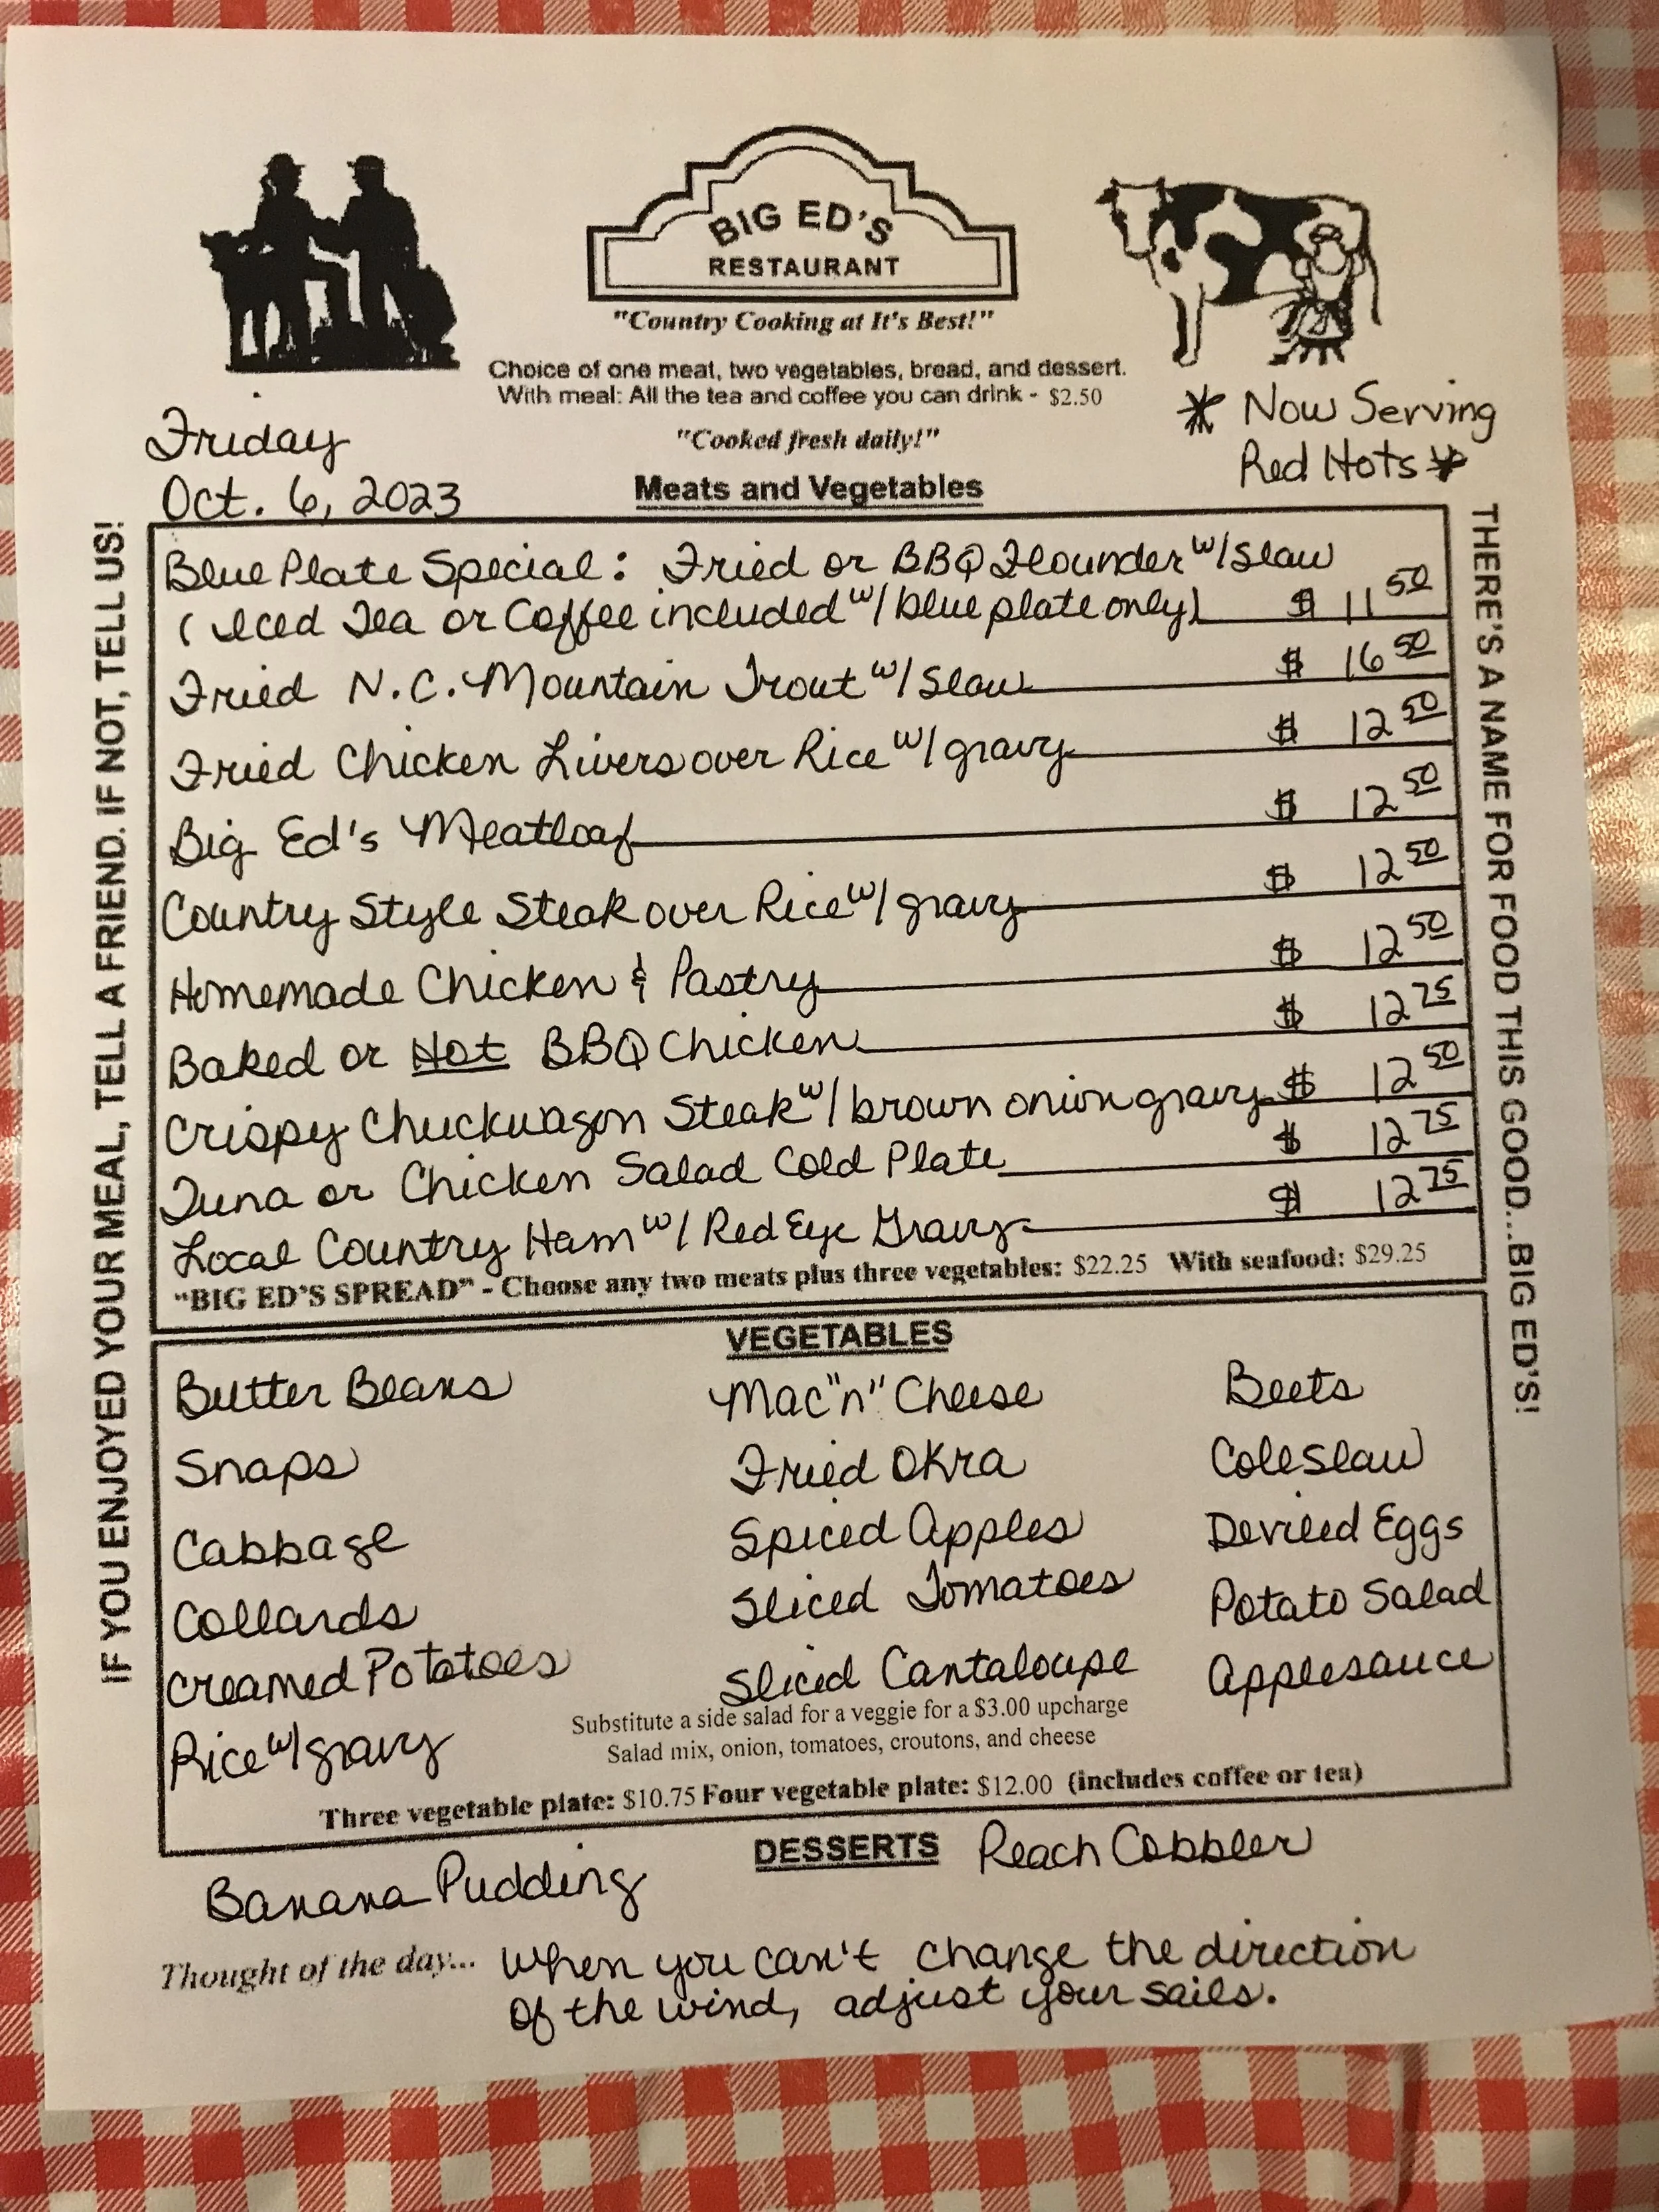 BIG ED'S
RESTAURANT
"Country Cooking at It's Best!"
Choice of one meat, two vegetables, bread, and dessert.
With meal: All the tea and coffee you can drink - $2.50
"Cooked fresh daily!"
Friday
Oct. 6, 2023
* Now Serving
Red Hots *
Meats and Vegetables
IF YOU ENJOYED YOUR MEAL, TELL A FRIEND. IF NOT, TELL US!
Blue Plate Special: Fried or BBQ Flounder w/ Slaw
(Iced Tea or Coffee included w/ blue plate only) $ 11 50
Fried N.C. Mountain Trout w/ Slaw $ 16 50
Fried Chicken Livers over Rice w/ gravy $ 12 50
Big Ed's Meatloaf $ 12 50
Country Style Steak over Rice w/ gravy $ 12 50
Homemade Chicken & Pastry $ 12 50
Baked or Hot BBQ Chicken $ 12 75
Crispy Chuckwagon Steak w/ brown onion gravy $ 12 50
Tuna or Chicken Salad Cold Plate $ 12 75
Local Country Ham w/ Red Eye Gravy $ 12 75
"BIG ED'S SPREAD" - Choose any two meats plus three vegetables: $22.25 With seafood: $29.25
THERE'S A NAME FOR FOOD THIS GOOD...BIG ED'S!
VEGETABLES
Butter Beans Mac "n" Cheese Beets
Snaps Fried Okra Coleslaw
Cabbage Spiced Apples Deviled Eggs
Collards Sliced Tomatoes Potato Salad
Creamed Potatoes Sliced Cantaloupe Applesauce
Rice w/ gravy
Substitute a side salad for a veggie for a $3.00 upcharge
Salad mix, onion, tomatoes, croutons, and cheese
Three vegetable plate: $10.75 Four vegetable plate: $12.00 (includes coffee or tea)
DESSERTS
Banana Pudding Peach Cobbler
Thought of the day... When you can't change the direction
of the wind, adjust your sails.